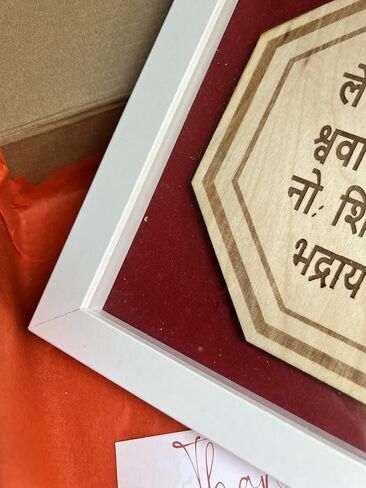 ले
श्ववा
नो; शि
भद्राय
Than